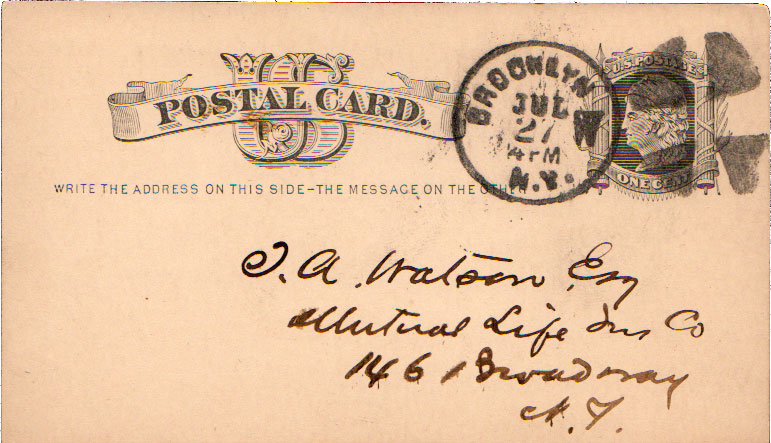 US
POSTAL CARD.
WRITE THE ADDRESS ON THIS SIDE-THE MESSAGE ON THE OTHER
BROOKLYN
JUL
27
4 PM
N.Y.
W
U.S. POSTAGE
ONE CENT
J. A. Watson Esq
Mutual Life Ins Co
146 Broadway
N. Y.